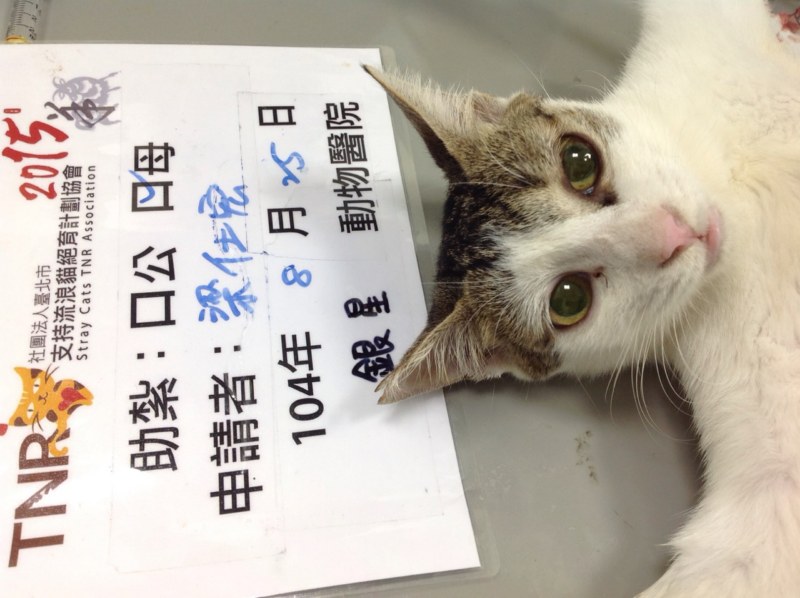 2015
羊
TNR
社團法人臺北市
支持流浪貓絕育計劃協會
Stray Cats TNR Association
助紮：口公 口母
申請者：梁仕宛
104年 8 月 25 日
銀星 動物醫院